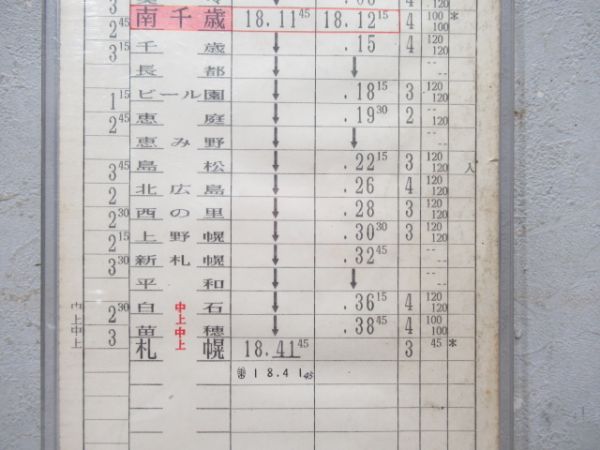 3 120
2 45 南千歳 18.11 45 18.12 15 4 100 100 *
3 15 千歳 ↓ .15 4 120 120
長都 ↓ ↓ -- --
1 15 ビール園 ↓ .18 15 3 120 120
2 45 恵庭 ↓ .19 30 2 -- 120
恵み野 ↓ ↓ -- --
3 45 島松 ↓ .22 15 3 120 120 入
2 北広島 ↓ .26 4 120 120
2 30 西の里 ↓ .28 3 120 120
2 15 上野幌 ↓ .30 30 3 120 120
3 30 新札幌 ↓ .32 45 -- --
平和 ↓ ↓ -- --
2 30 白石 中上 ↓ .36 15 4 120 120
3 苗穂 中上 ↓ .38 45 4 100 100
札幌 18.41 45 3 45 *
18.41 45